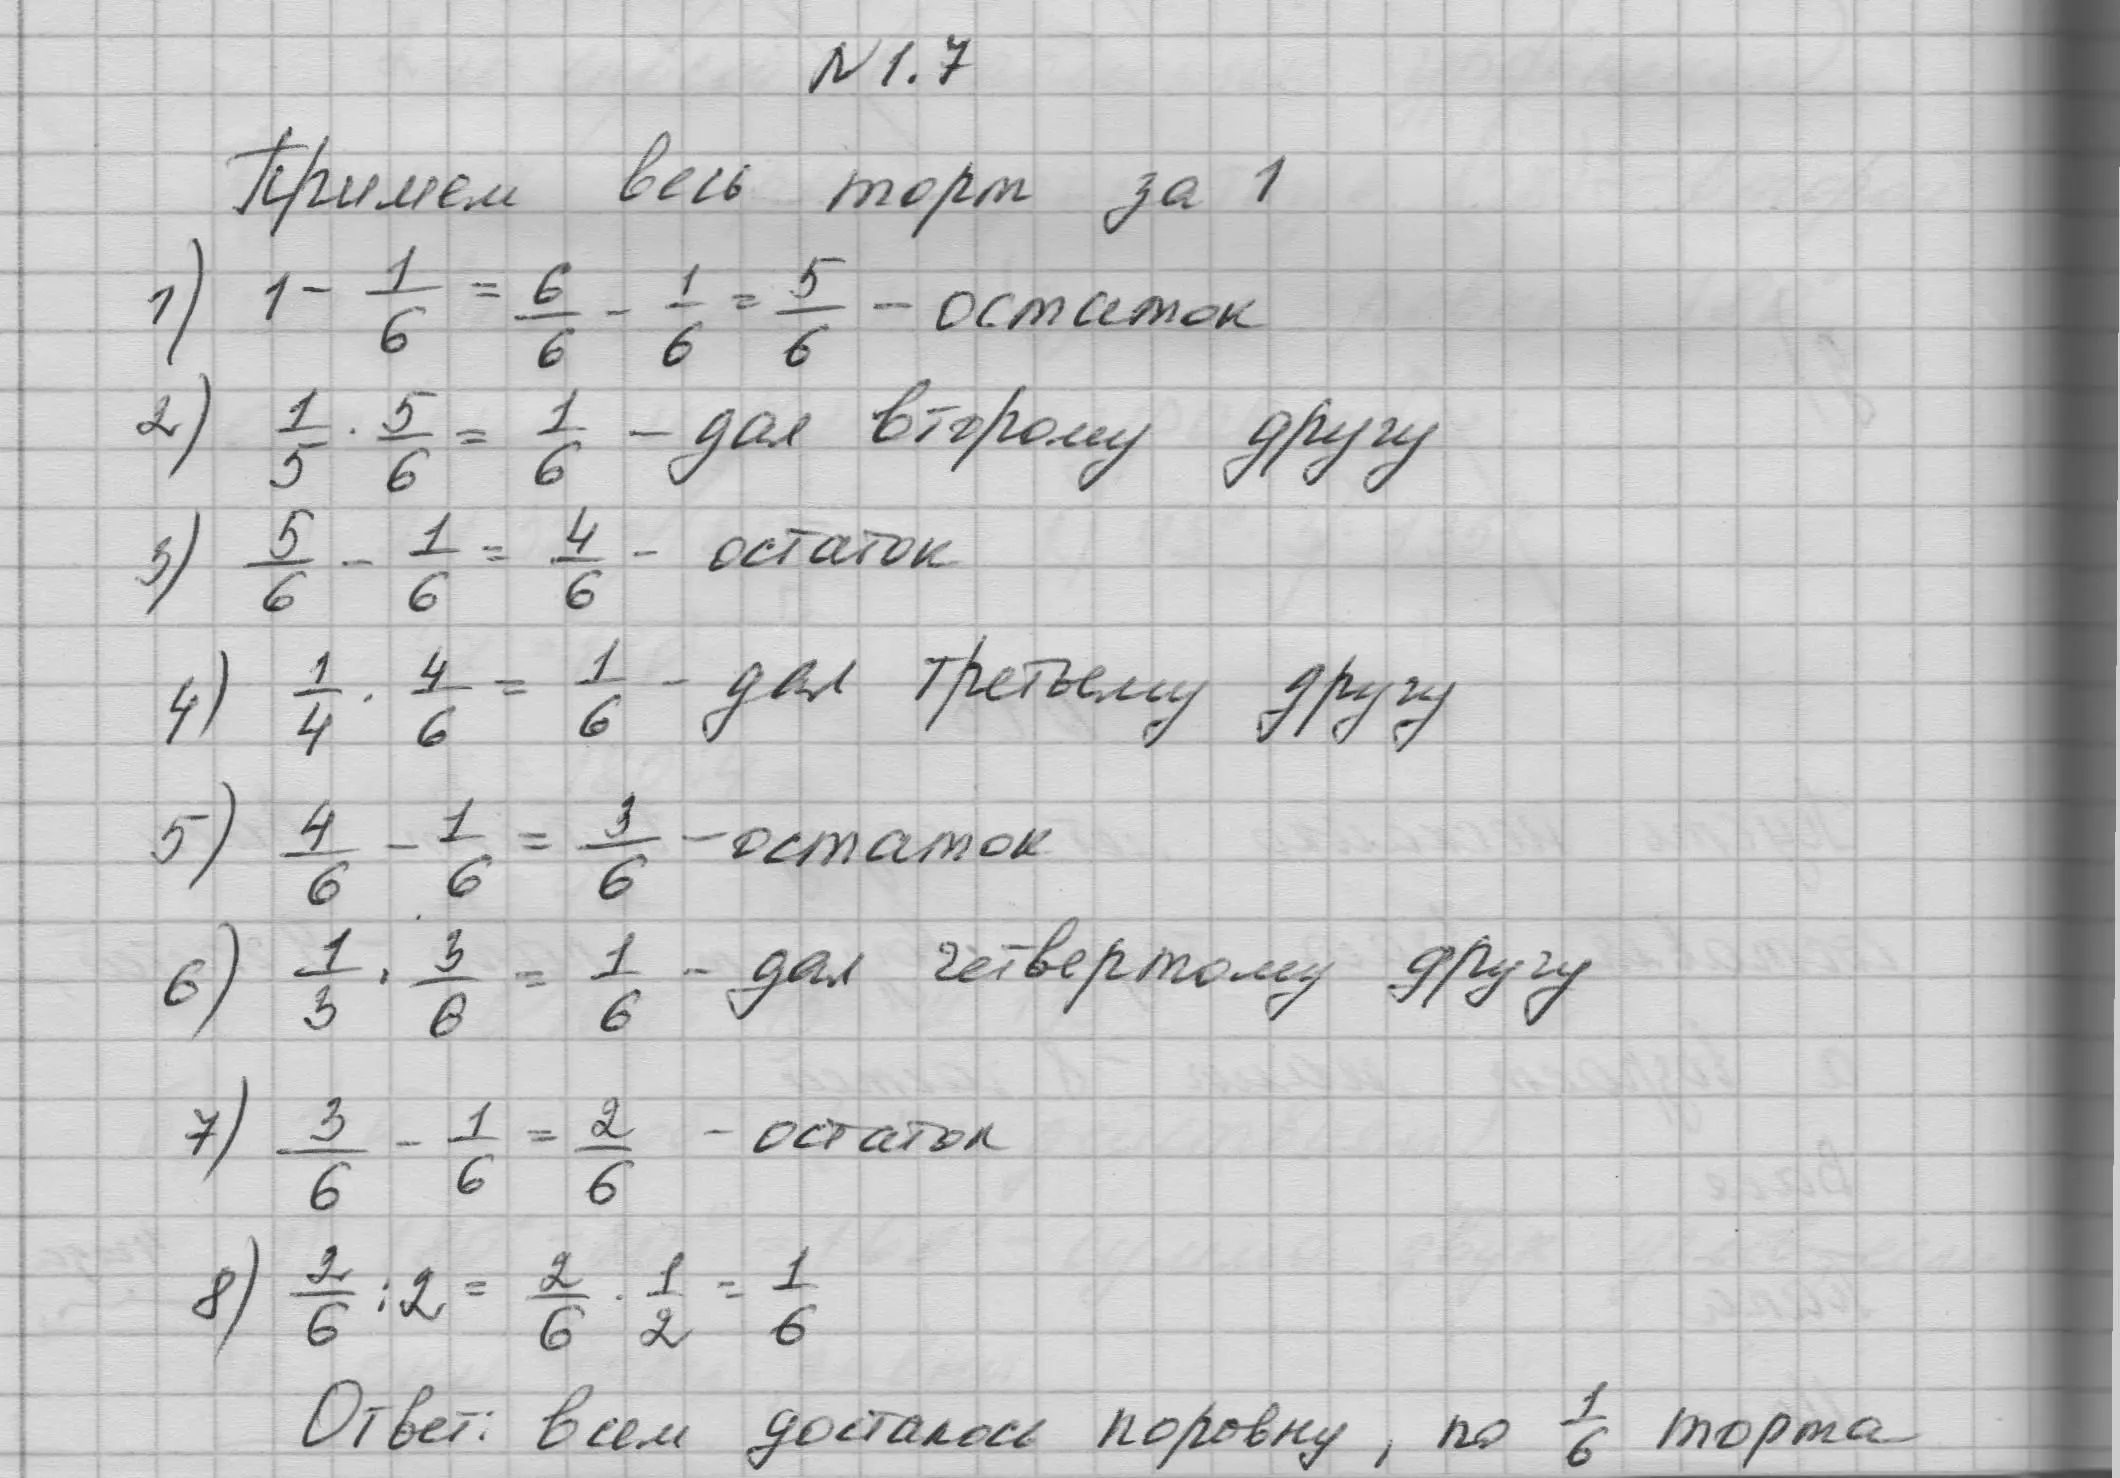 N 1.7
Примем весь торт за 1
1) 1 - 1/6 = 6/6 - 1/6 = 5/6 - остаток
2) 1/5 · 5/6 = 1/6 - дал второму другу
3) 5/6 - 1/6 = 4/6 - остаток
4) 1/4 · 4/6 = 1/6 - дал третьему другу
5) 4/6 - 1/6 = 3/6 - остаток
6) 1/3 · 3/6 = 1/6 - дал четвертому другу
7) 3/6 - 1/6 = 2/6 - остаток
8) 2/6 : 2 = 2/6 · 1/2 = 1/6
Ответ: всем досталось поровну, по 1/6 торта